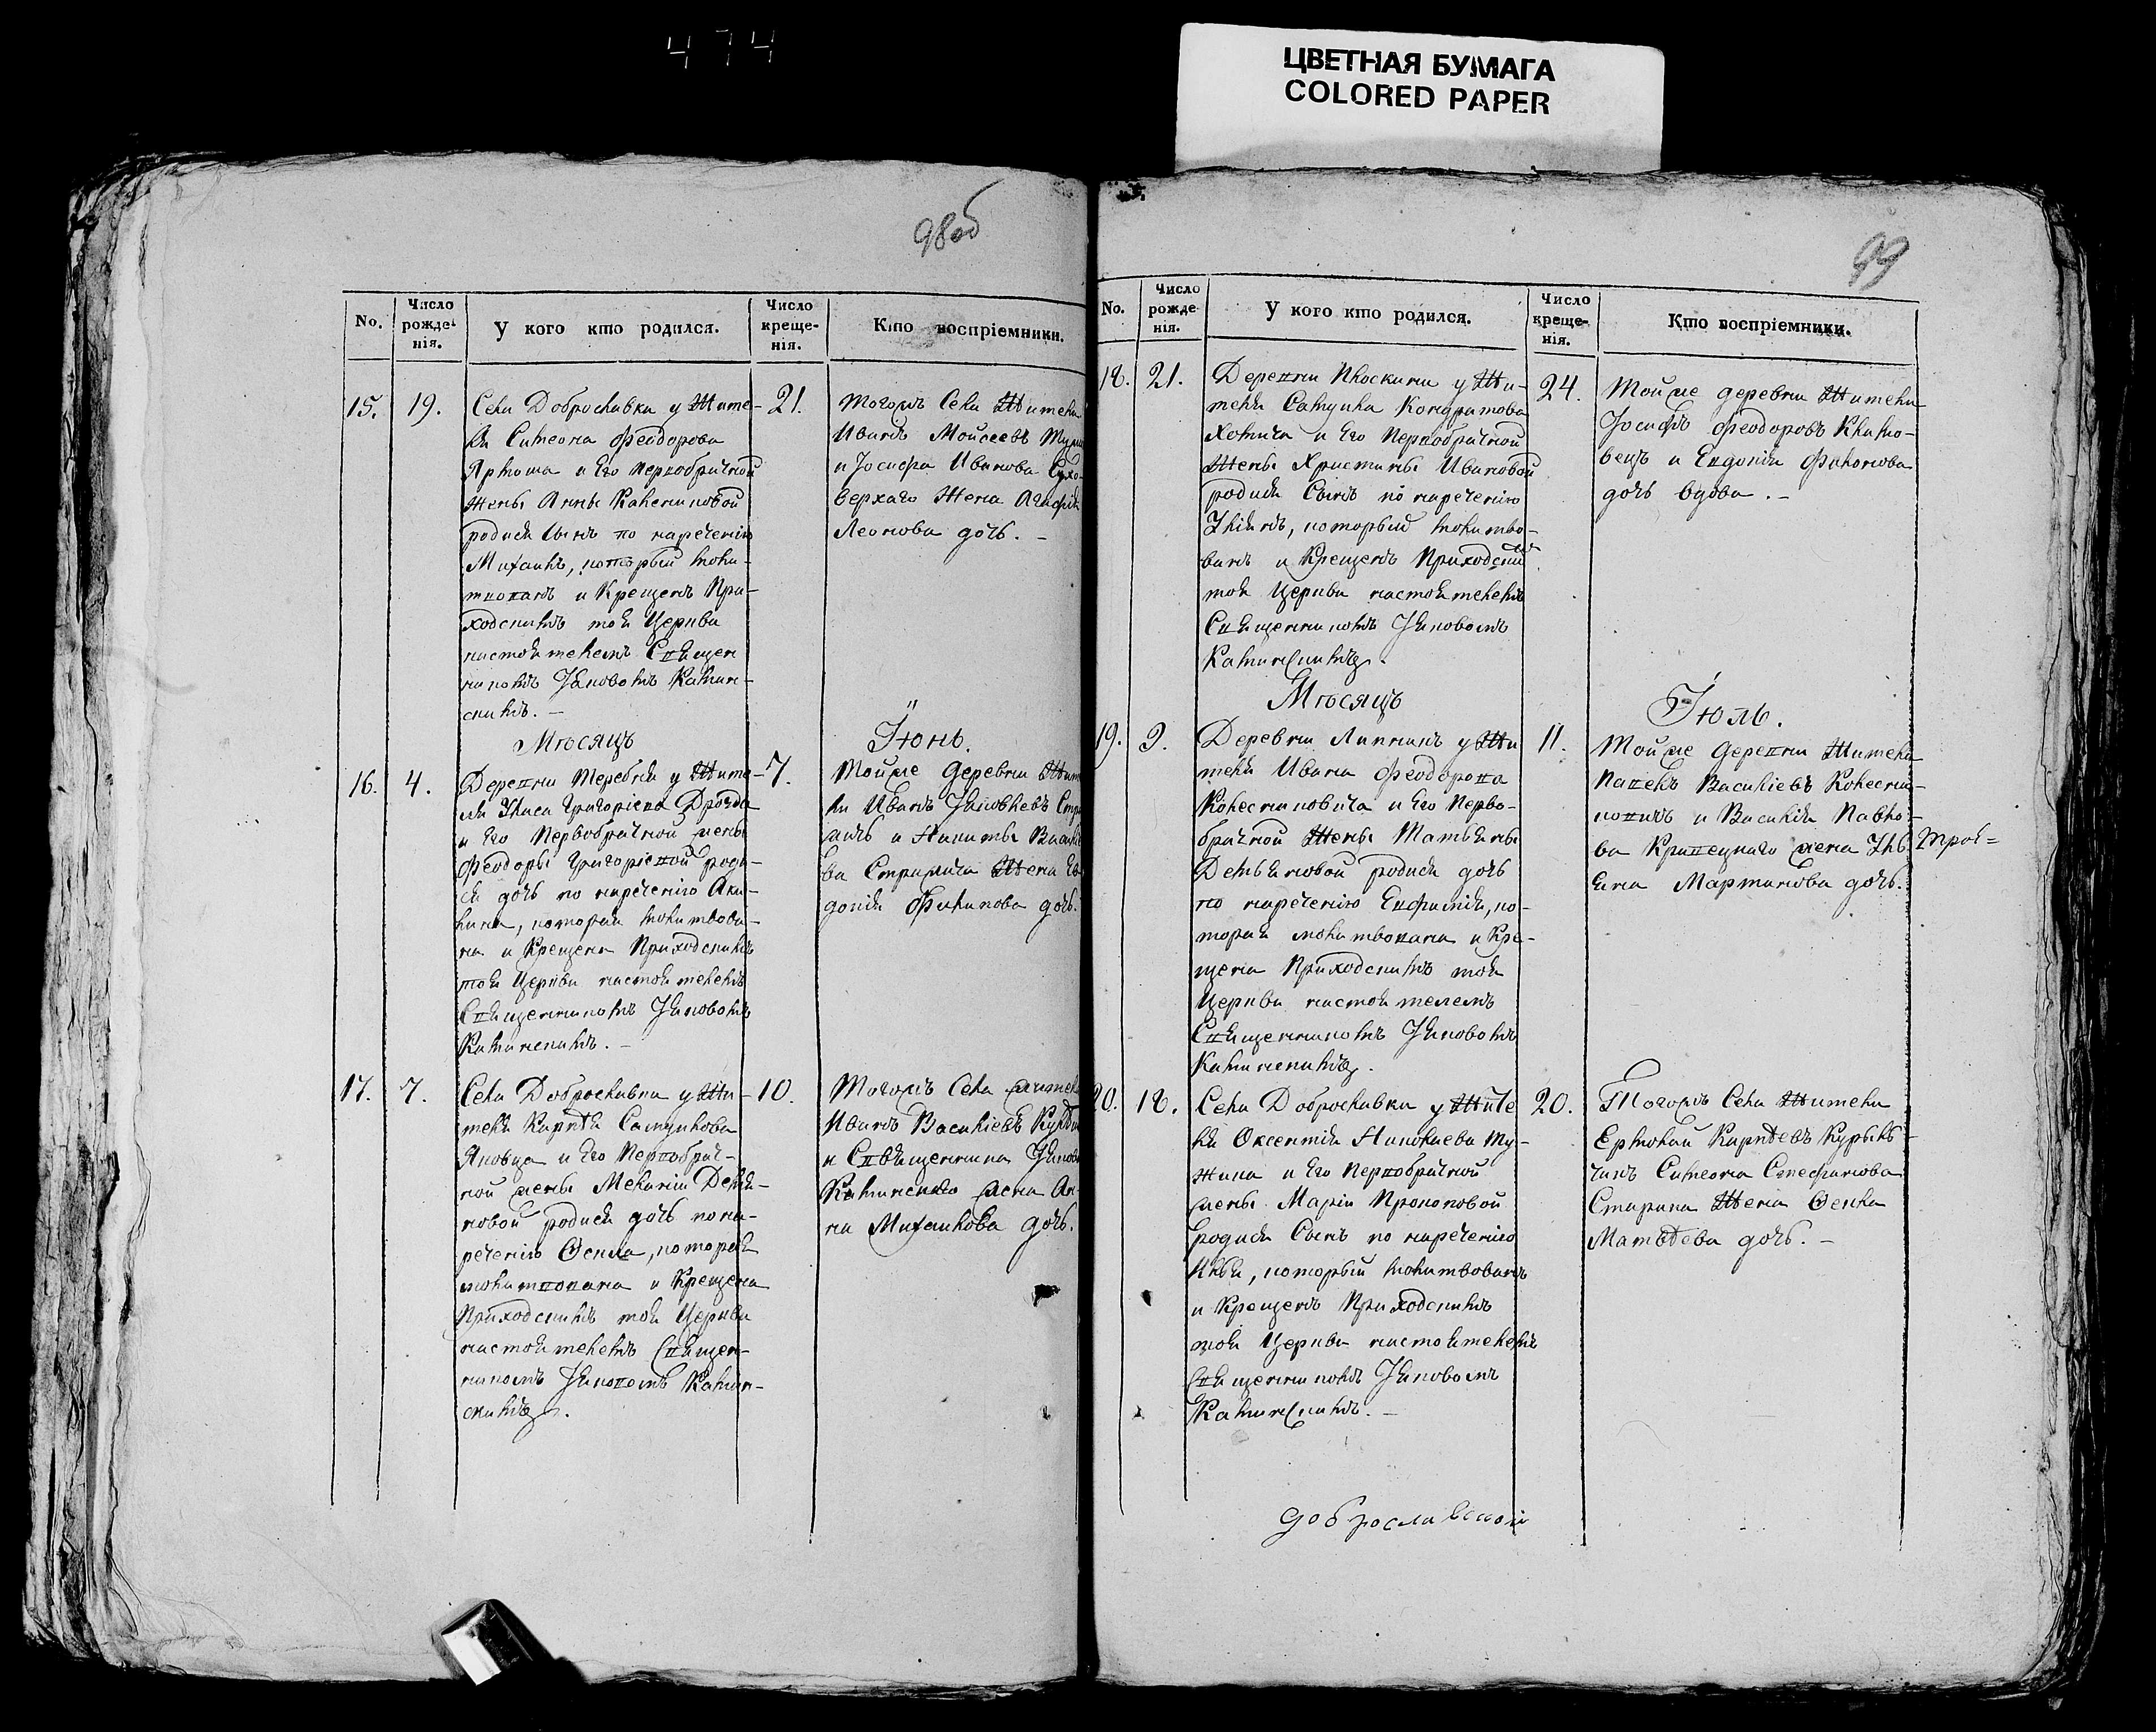 474
ЦВЕТНАЯ БУМАГА
COLORED PAPER
98об
No.
Число рожденія.
У кого кто родился.
Число крещенія.
Кто воспріемники.
15.
19.
Села Доброславки у Жите-
ля Симеона Феодорова
Яртыша и Его первобрачной
Жены Анны Калениковой
родися Сынъ по нареченію
Михаилъ, который моли-
твованъ и Крещенъ При-
ходскимъ тоя Церкви
настоятелемъ Священ
никомъ Яковомъ Камин-
скимъ. –
21.
Тогожъ Села Жители
Иванъ Моисеевъ
и Іосифа Иванова Сухо-
верхаго Жена Агафія
Леонова дочь. –
Мѣсяцъ
Іюнь.
16.
4.
Деревни Теребня у Жите-
ля Уласа Григоріева Дрозда
и Его Первобрачной жены
Феодоры Григоріевой роди-
ся дочь по нареченію Аки-
лина, которая молитвова-
на и Крещена Приходскимъ
тоя Церкви настоятелемъ
Священникомъ Яковомъ
Каминскимъ. –
7.
Тойже Деревни Жите
ли Иванъ Яковлевъ
и Никиты Василіе
ва Жена Ев
докія Филипова дочь.
17.
7.
Села Доброславки у Жи-
теля Карпа Самуилова
Яковца и Его Первобрач-
ной жены Меланіи Демя-
новой родися дочь по на-
реченію Фекла, которая
молитвована и Крещена
Приходскимъ тоя Церкви
настоятелемъ Священ-
никомъ Яковомъ Камин-
скимъ.
10.
Тогожъ Села жители
Иванъ Василіевъ
и Священника Якова
Каминскаго жена Ан-
на Михаилова дочь.
99
No.
Число рожденія.
У кого кто родился.
Число крещенія.
Кто воспріемники.
18.
21.
Деревни Плоскини у Жи-
теля Самуила Кондратова
Хомича и Его Первобрачной
Жены Христины Ивановой
родися Сынъ по нареченію
Уліянъ, который молитво-
ванъ и Крещенъ Приходскимъ
тоя Церкви настоятелемъ
Священникомъ Яковомъ
Каминскимъ.
24.
Тойже деревни Жители
Іосифъ Феодоровъ Климо-
вецъ и Евдокія Филонова
дочь вдова. –
Мѣсяцъ
Іюль.
19.
9.
Деревни Липники у Жи
теля Ивана Феодорова
Колесниковича и Его Перво-
брачной Жены Татьяны
Демьяновой родися дочь
по нареченію Евфимія, ко-
торая молитвована и Кре-
щена Приходскимъ тоя
Церкви настоятелемъ
Священникомъ Яковомъ
Каминскимъ.
11.
Тойже деревни Жители
Павелъ Василіевъ Колесни-
ковичъ и Василія Павло-
ва Кривецкаго жена Уль
яна Мартинова дочь.
трое=
20.
18.
Села Доброславки у Жите
ля Оксентія Николаева Ту-
жика и Его Первобрачной
жены Маріи Прокоповой
родися Сынъ по нареченію
Илья, который молитвованъ
и Крещенъ Приходскимъ
тоя Церкви настоятелемъ
Священникомъ Яковомъ
Каминскимъ. –
20.
Тогожъ Села Жители
Ермолай Карпѣевъ Курыль-
чикъ Симеона Стефанова
Старика Жена Фекла
Матвѣева дочь. –
доброславской